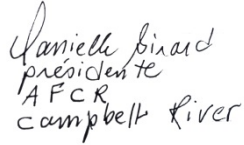 Danielle Sirard
présidente
AFCR
Campbell River